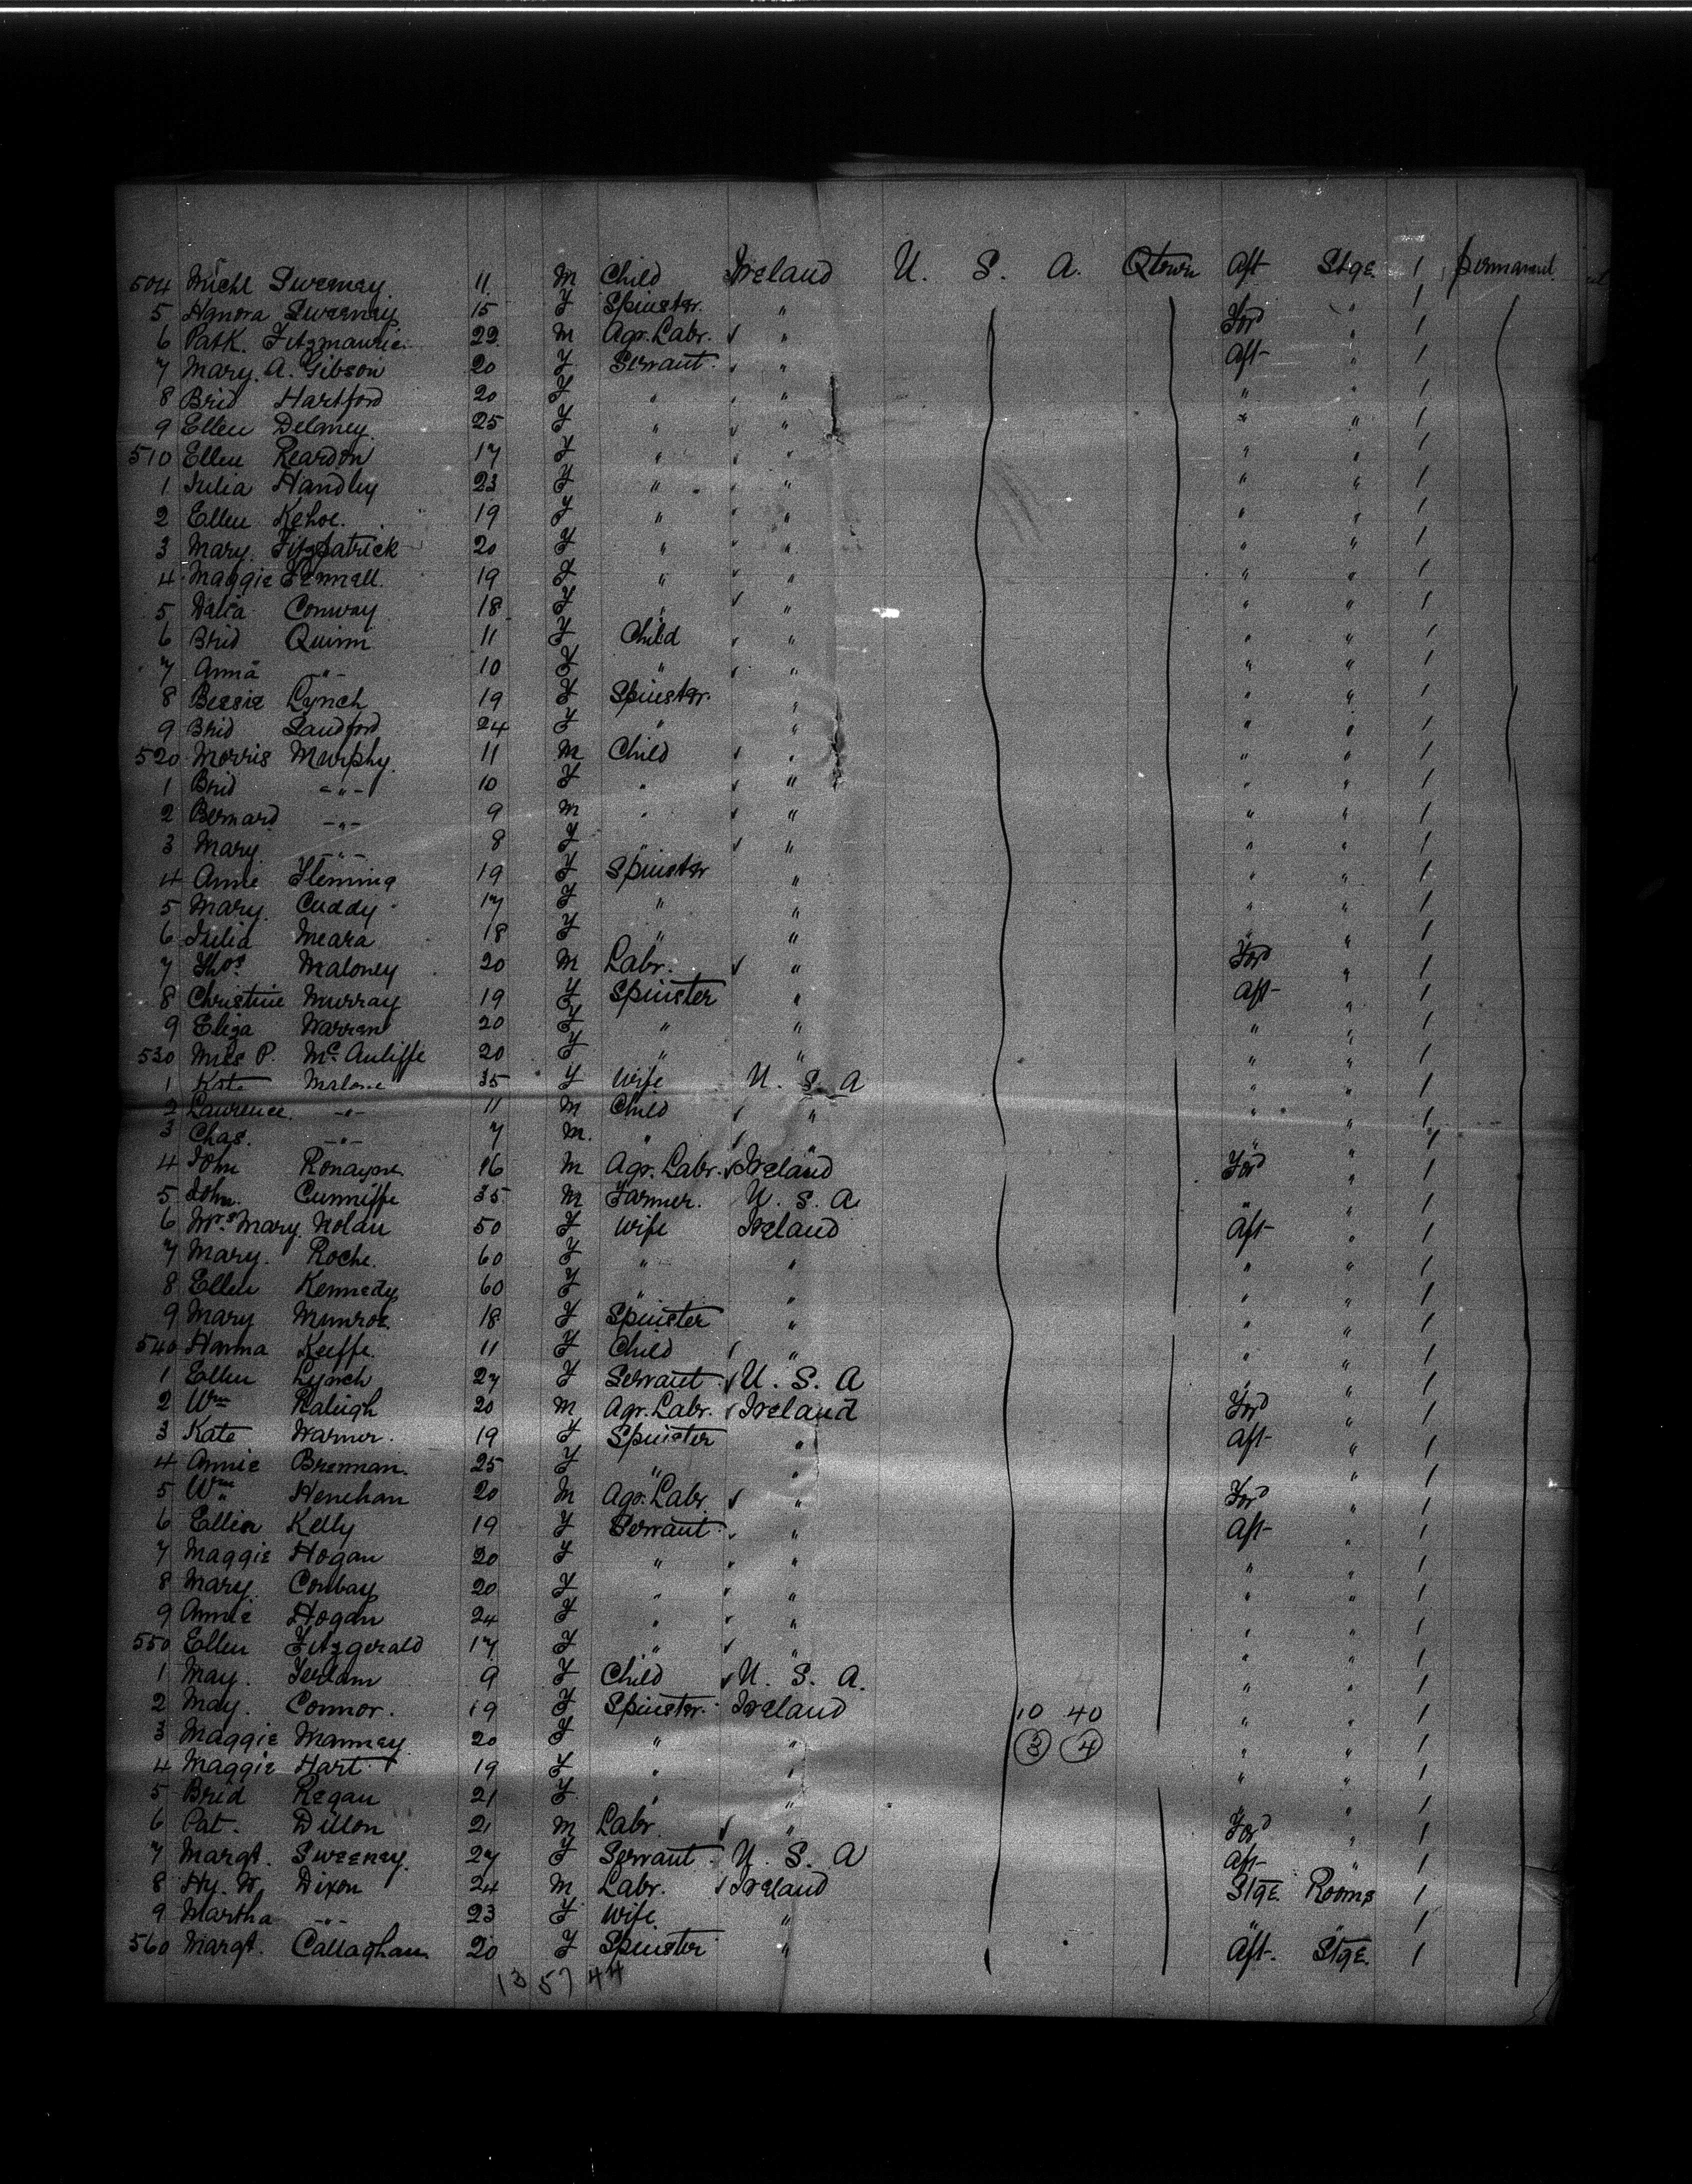 504 Michl Sweeney 11 M Child Ireland U. S. A. Qtown Aft Stge 1 permanent
5 Hanora Sweeney 15 F Spinster. " Ford " 1
6 Patk. Fitzmaurice 22 M Agr. Labr. " Aft " 1
7 Mary. A. Gibson 20 F Servant " " 1
8 Brid Hartford 20 F " " " " 1
9 Ellen Delaney 25 F " " " " 1
510 Ellen Reardon 17 F " " " " 1
1 Julia Handley 23 F " " " " 1
2 Ellen Kehoe. 19 F " " " " 1
3 Mary. Fitzpatrick 20 F " " " " 1
4 Maggie Fennell. 19 F " " " " 1
5 Delia Conway 18 F " " " " 1
6 Brid Quinn 11 F Child " " " 1
7 Anna " 10 F " " " " 1
8 Bessie Lynch 19 F Spinster. " " " 1
9 Brid Sandford 24 F " " " " 1
520 Morris Murphy. 11 M Child " " " 1
1 Brid " 10 F " " " " 1
2 Bernard " 9 M " " " " 1
3 Mary " 8 F " " " " 1
4 Anne Fleming 19 F Spinster " " " 1
5 Mary. Cuddy 17 F " " " " 1
6 Julia Meara 18 F " " " " 1
7 Thos. Maloney 20 M Labr. " Ford " 1
8 Christine Murray 19 F Spinster " Aft " 1
9 Eliza Warren 20 F " " " " 1
530 Miss P. McAuliffe 20 F " " " " 1
1 Kate Malone 35 F Wife U. S. A " " 1
2 Lawrence " 11 M Child " " " 1
3 Chas. " 7 M. " " " " 1
4 John Ronayne 16 M Agr. Labr. Ireland Ford " 1
5 John. Cunniffe 35 M Farmer. U. S. A. " " 1
6 Mrs Mary Nolan 50 F Wife Ireland Aft " 1
7 Mary. Roche. 60 F " " " " 1
8 Ellen Kennedy 60 F " " " " 1
9 Mary Munroe. 18 F Spinster " " " 1
540 Hanna Keeffe. 11 F Child " " " 1
1 Ellen Lynch 27 F Servant U. S. A " " 1
2 Wm Raleigh 20 M Agr. Labr. Ireland Ford " 1
3 Kate Warner. 19 F Spinster " Aft " 1
4 Annie Brennan. 25 F " " " 1
5 Wm Henehan 20 M Agr. Labr. " Ford " 1
6 Ellen Kelly 19 F Servant " Aft " 1
7 Maggie Hogan 20 F " " " " 1
8 Mary. Conbay 20 F " " " " 1
9 Annie Hogan 24 F " " " " 1
550 Ellen Fitzgerald 17 F " " " " 1
1 May. 9 F Child U. S. A. " " 1
2 May. Connor. 19 F Spinster. Ireland 10 40 " " 1
3 Maggie Manney 20 F " " 3 4 " " 1
4 Maggie Hart 19 F " " " " 1
5 Brid Regan 21 F " " " " 1
6 Pat. Dillon 21 M Labr. " Ford " 1
7 Margt. Sweeney. 27 F Servant U. S. A Aft " 1
8 Hy. W. Dixon 24 M Labr. Ireland Stge Rooms 1
9 Martha " 23 F Wife. " " " 1
560 Margt. Callaghan. 20 F Spinster " Aft. Stge. 1
13 57 44